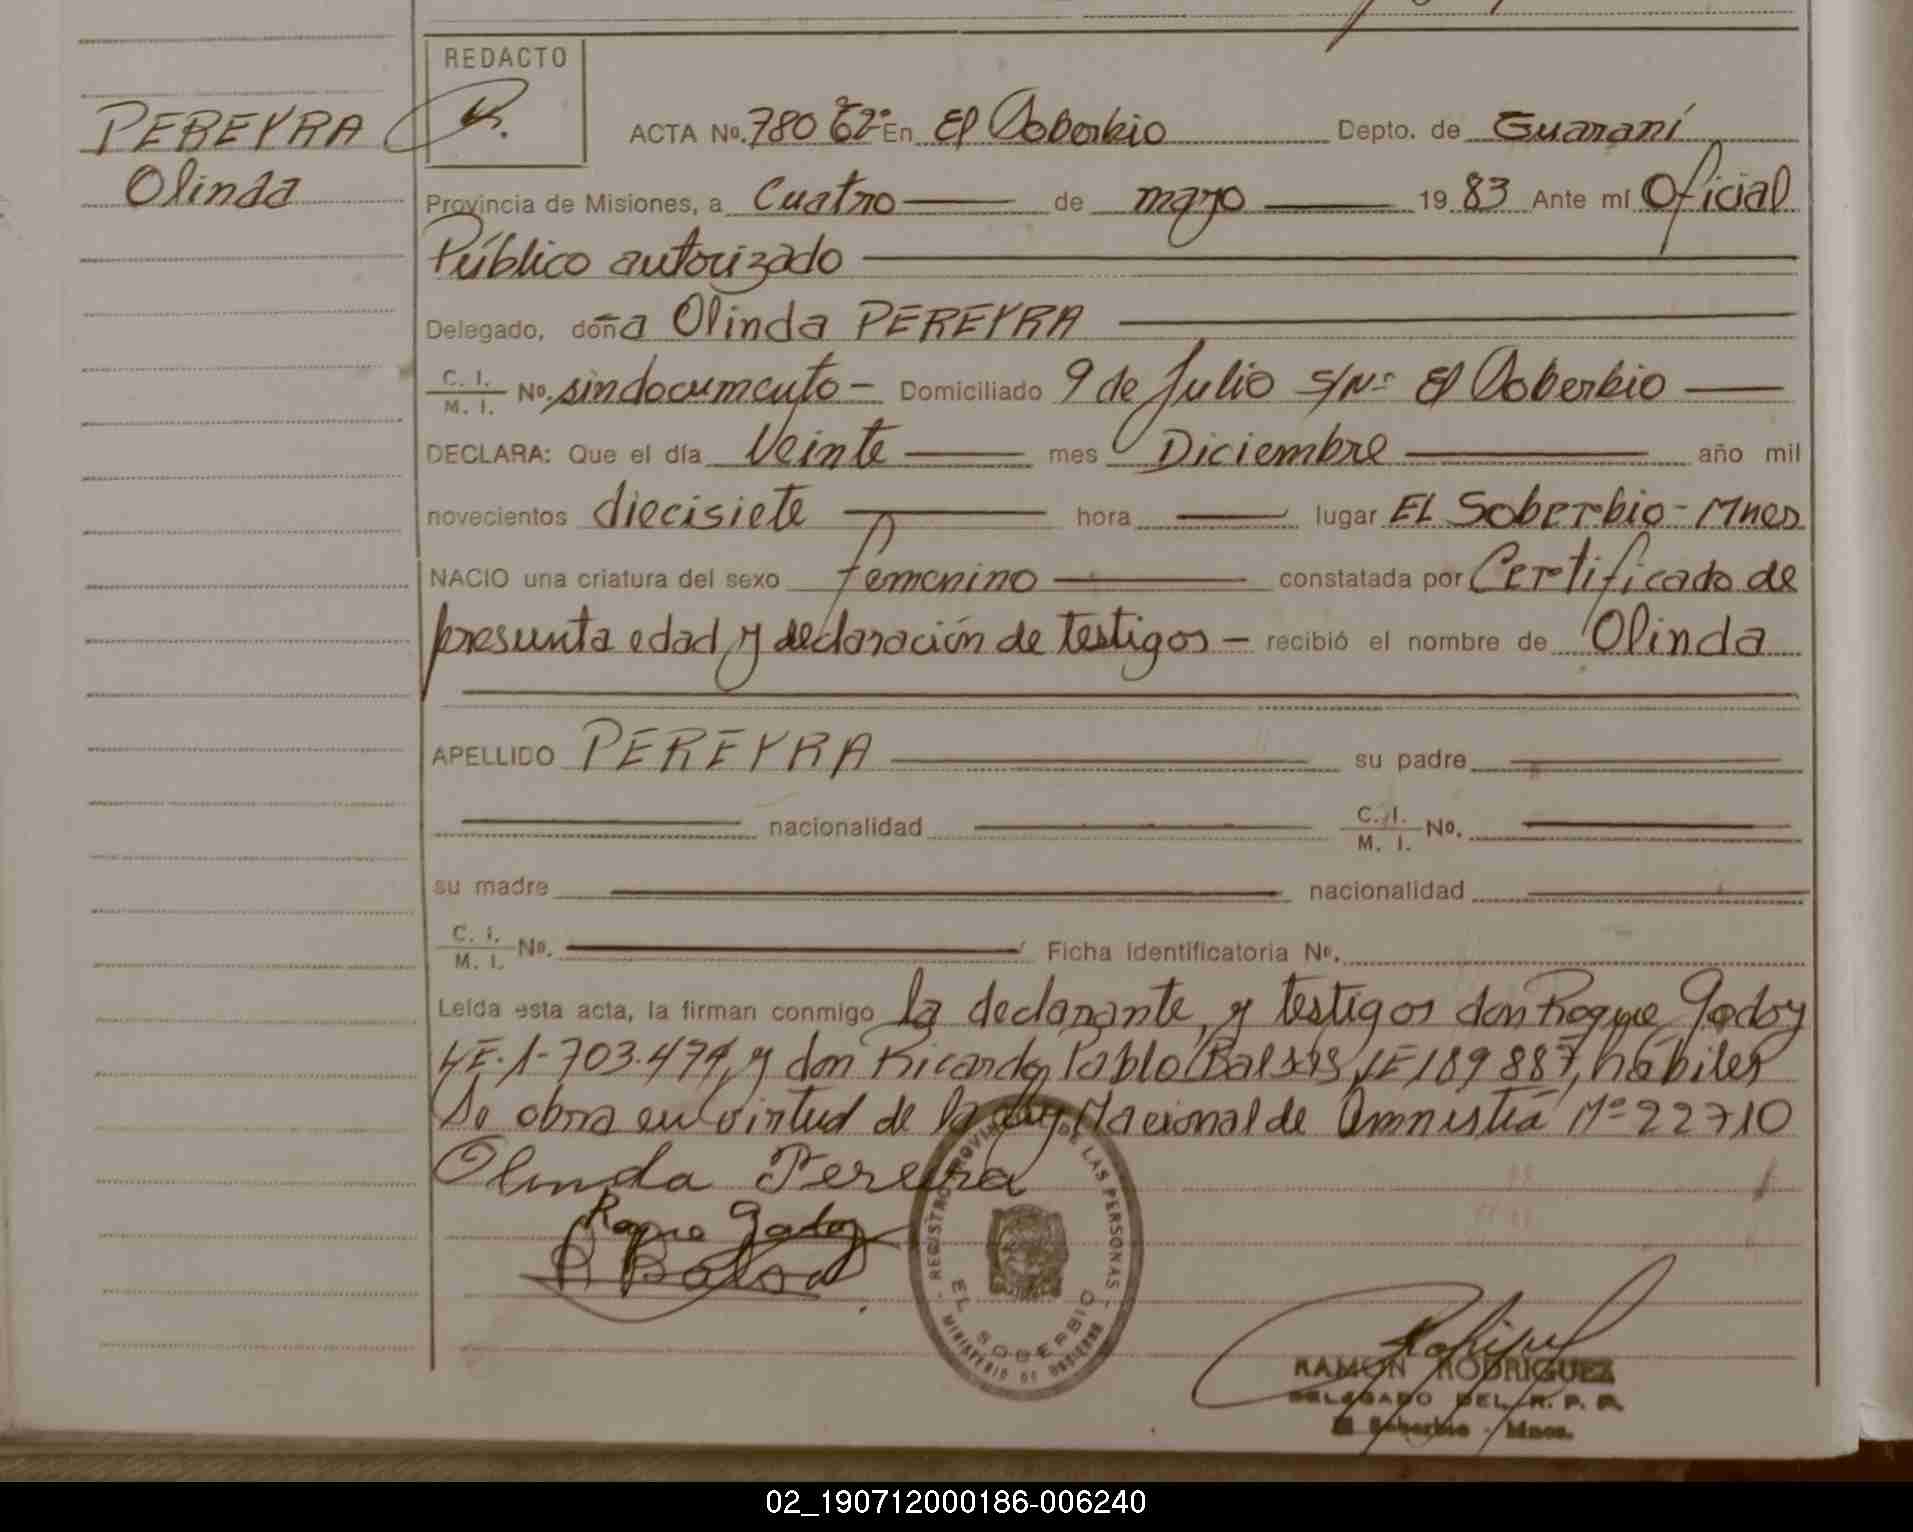 REDACTO
PEREYRA
Olinda
ACTA Nº. 780 Tº2º En El Soberbio Depto. de Guaraní
Provincia de Misiones, a Cuatro de mayo 19 83 Ante mí Oficial
Público autorizado
Delegado, doña Olinda PEREYRA
C. I. / M. I. Nº. sin documento - Domiciliado 9 de Julio S/Nº El Soberbio
DECLARA: Que el día Veinte mes Diciembre año mil
novecientos diecisiete hora lugar EL Soberbio - Mnes
NACIO una criatura del sexo femenino constatada por Certificado de
presunta edad y declaración de testigos - recibió el nombre de Olinda
APELLIDO PEREYRA su padre
nacionalidad C. I. / M. I. Nº.
su madre nacionalidad
C. I. / M. I. Nº. Ficha Identificatoria Nº.
Leída esta acta, la firman conmigo la declarante, y testigos don Roque Godoy
LE. 1-703.474, y don Ricardo Pablo LE 189 887, hábiles
Se obra en virtud de la Ley Nacional de Amnistía Nº 22710
Olinda Pereira
Roque Godoy
R Balsa
REGISTRO PROVINCIAL DE LAS PERSONAS
EL SOBERBIO
MINISTERIO DE GOBIERNO
RAMON RODRIGUEZ
DELEGADO DEL R. P. P.
El Soberbio - Mnes.
02_190712000186-006240